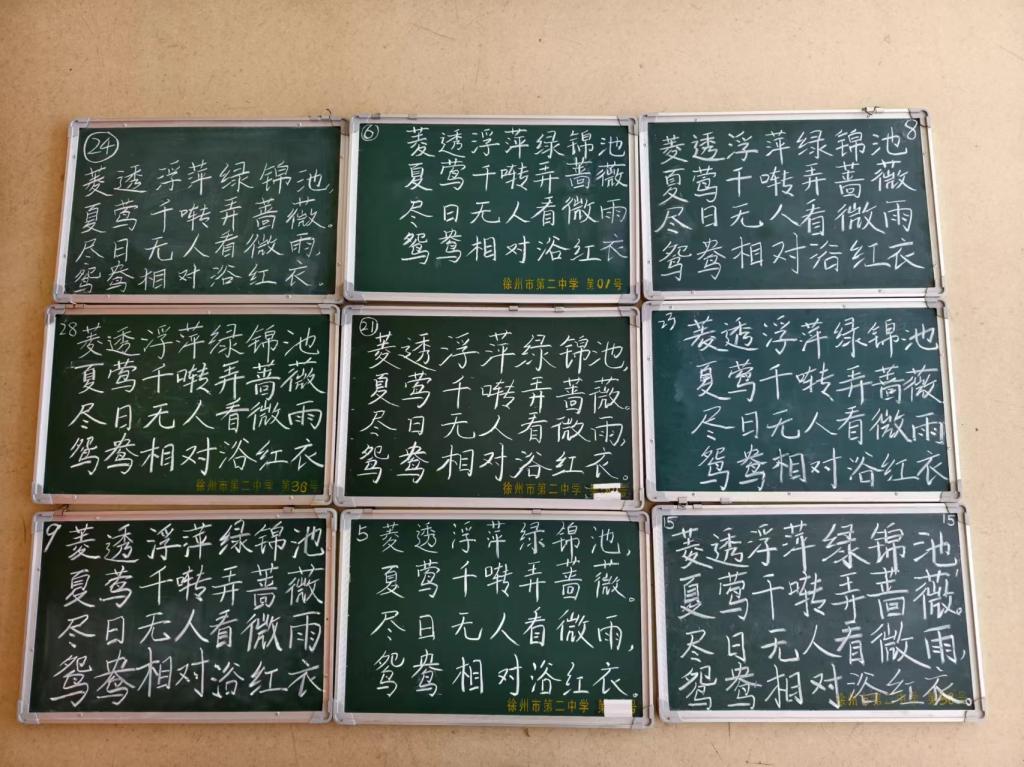 24
菱透浮萍绿锦池,
夏莺千啭弄蔷薇。
尽日无人看微雨,
鸳鸯相对浴红衣。
6
菱透浮萍绿锦池
夏莺千啭弄蔷薇
尽日无人看微雨
鸳鸯相对浴红衣
徐州市第二中学 第01号
8
菱透浮萍绿锦池
夏莺千啭弄蔷薇
尽日无人看微雨
鸳鸯相对浴红衣
28
菱透浮萍绿锦池
夏莺千啭弄蔷薇
尽日无人看微雨
鸳鸯相对浴红衣
徐州市第二中学 第36号
21
菱透浮萍绿锦池,
夏莺千啭弄蔷薇。
尽日无人看微雨,
鸳鸯相对浴红衣。
徐州市第二中学
23
菱透浮萍绿锦池
夏莺千啭弄蔷薇
尽日无人看微雨
鸳鸯相对浴红衣
9
菱透浮萍绿锦池
夏莺千啭弄蔷薇
尽日无人看微雨
鸳鸯相对浴红衣
5
菱透浮萍绿锦池,
夏莺千啭弄蔷薇。
尽日无人看微雨,
鸳鸯相对浴红衣。
徐州市第二中学
15 15
菱透浮萍绿锦池,
夏莺千啭弄蔷薇。
尽日无人看微雨,
鸳鸯相对浴红衣。
徐州市第二中学